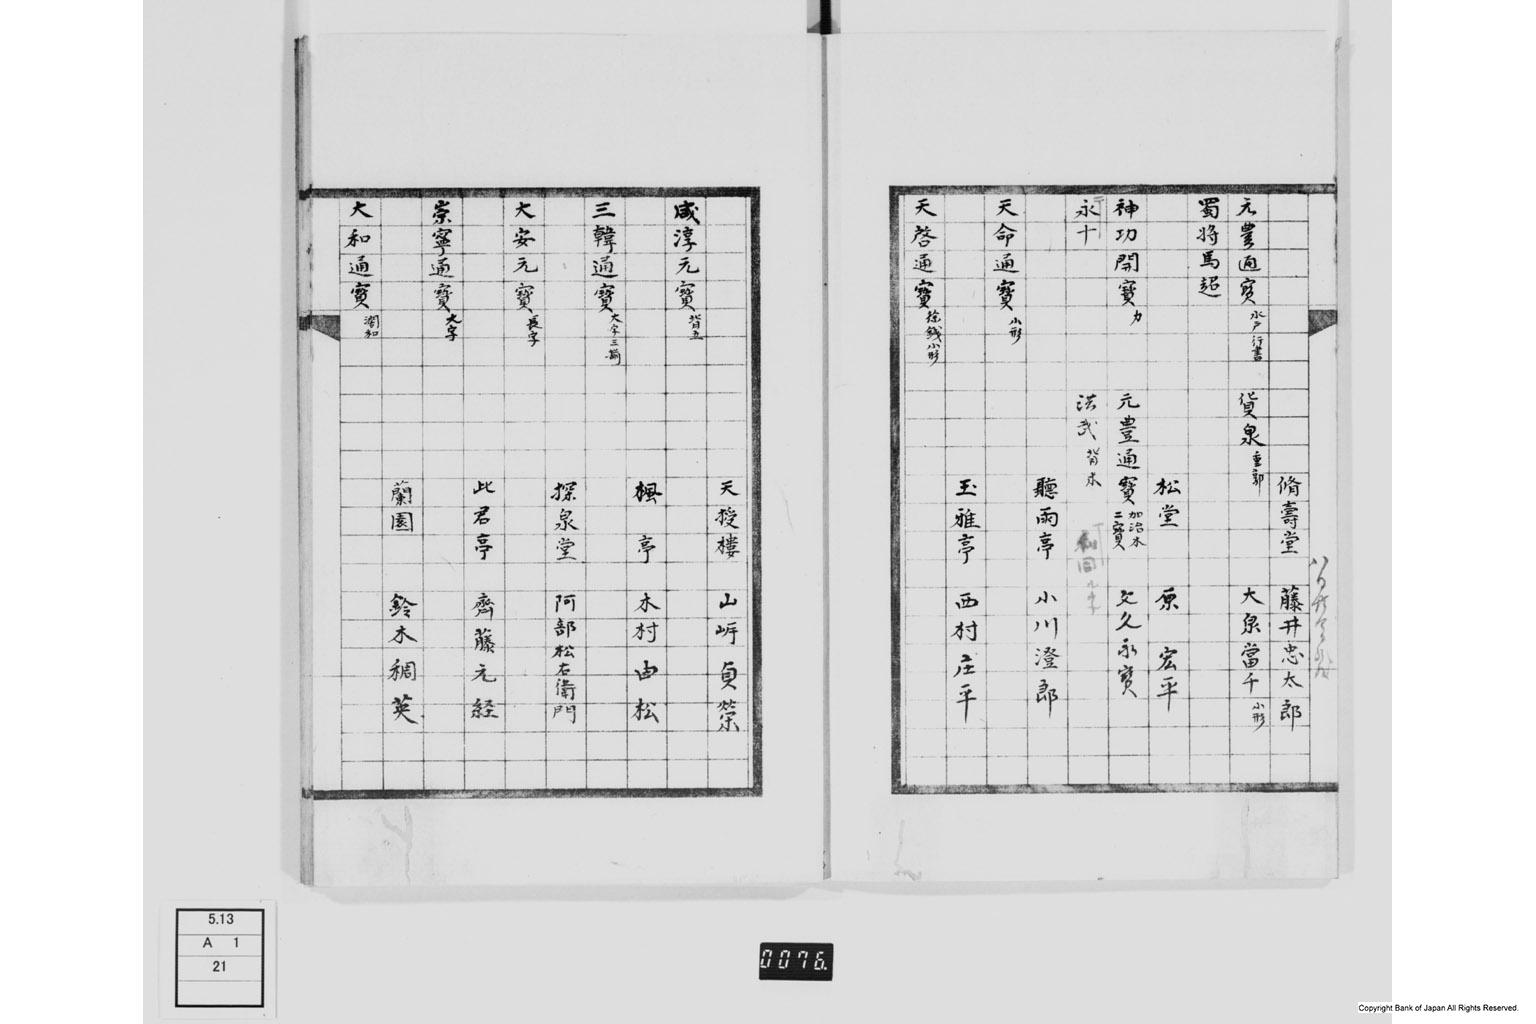 脩壽堂 藤井忠太郎
元豊通寳 水戸行書 貨泉 重郭 大泉當千 小形
蜀将馬超
松堂 原 宏平
神功開寳 力 元豊通寳 加治木 二寳 文久永寳
永十 洪武 背木
聽雨亭 小川澄郎
天命通寳 小形
玉雅亭 西村庄平
天啓通寳 徐錢小形
天授樓 山㟁貞榮
咸淳元寳 背五
楓亭 木村由松
三韓通寳 大字三
探泉堂 阿部松右衛門
大安元寳 長字
此君亭 齊藤元経
崇寧通寳 大字
蘭園 鈴木稠英
大和通寳 濶和
5.13
A 1
21
0076.
Copyright Bank of Japan All Rights Reserved.